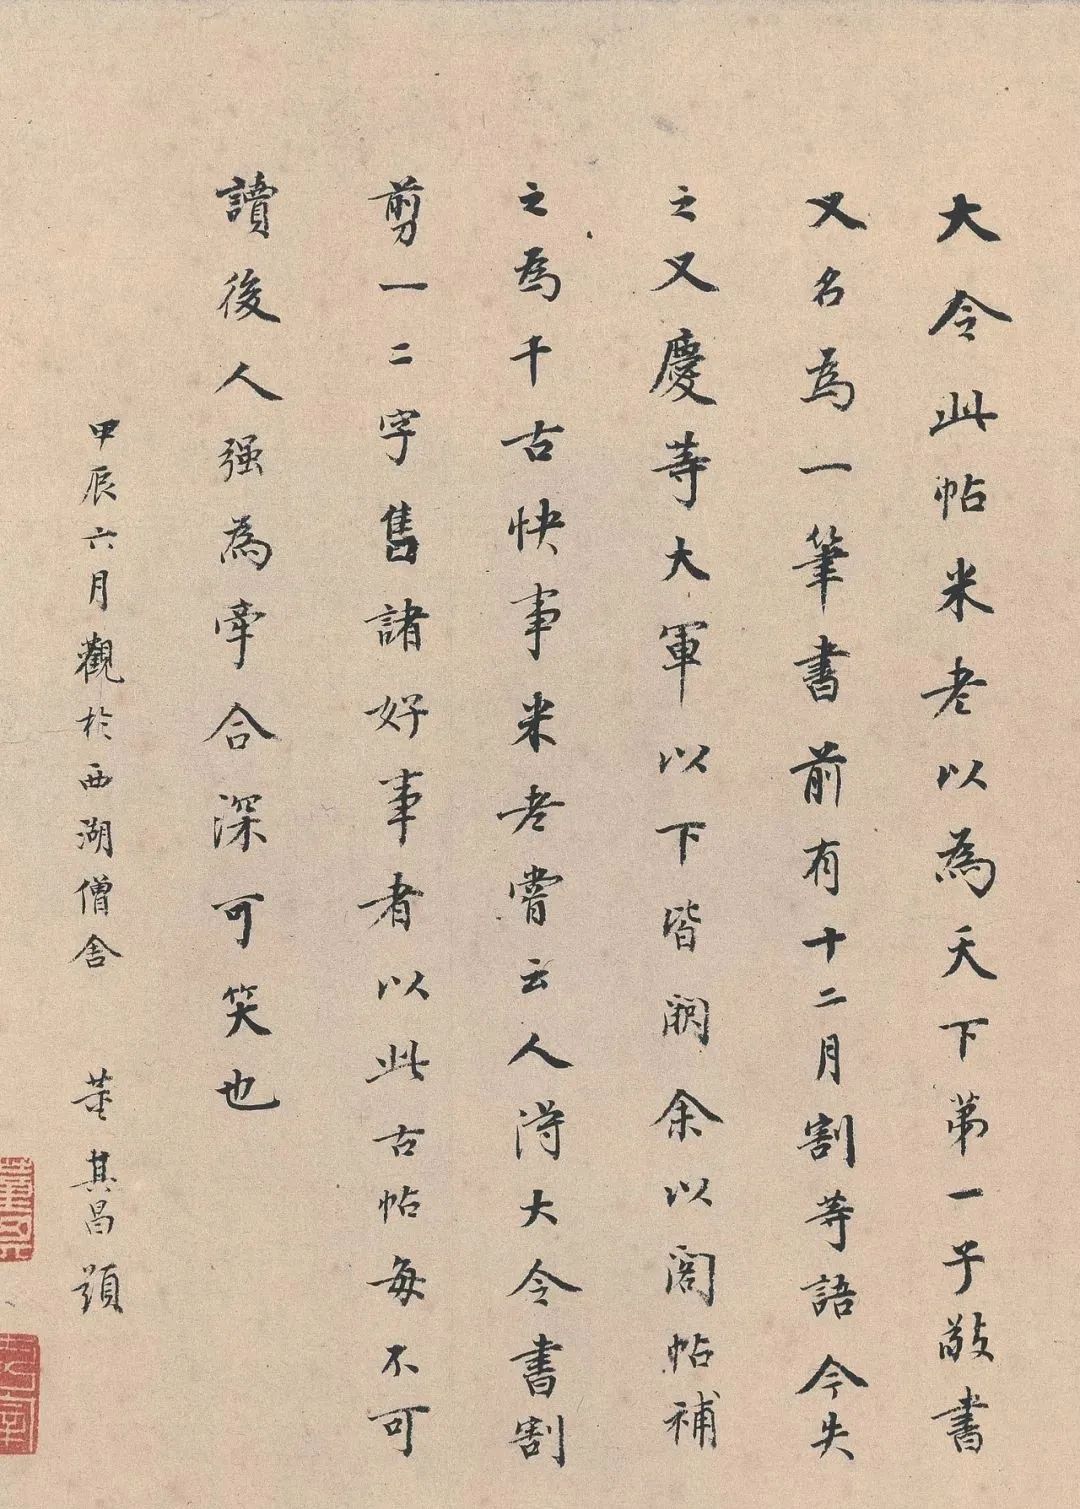 大令此帖米老以為天下第一子敬書
又名為一筆書前有十二月割等語今失
之又慶等大軍以下皆闕余以閣帖補
之為千古快事米老嘗云人得大令書割
剪一二字售諸好事者以此古帖每不可
讀後人强為牽合深可笑也
甲辰六月觀於西湖僧舍 董其昌題